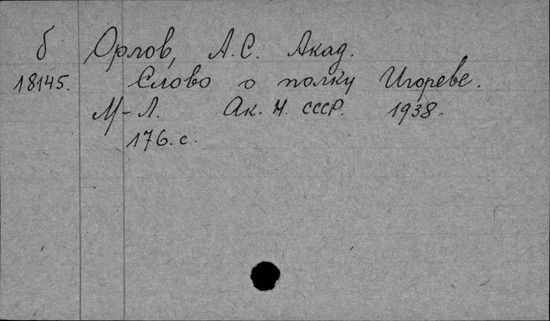 б Орлов, А.С. Акад.
18145. Слово о полку Игореве.
М-Л. Ак. Н. СССР. 1938.
176. с.